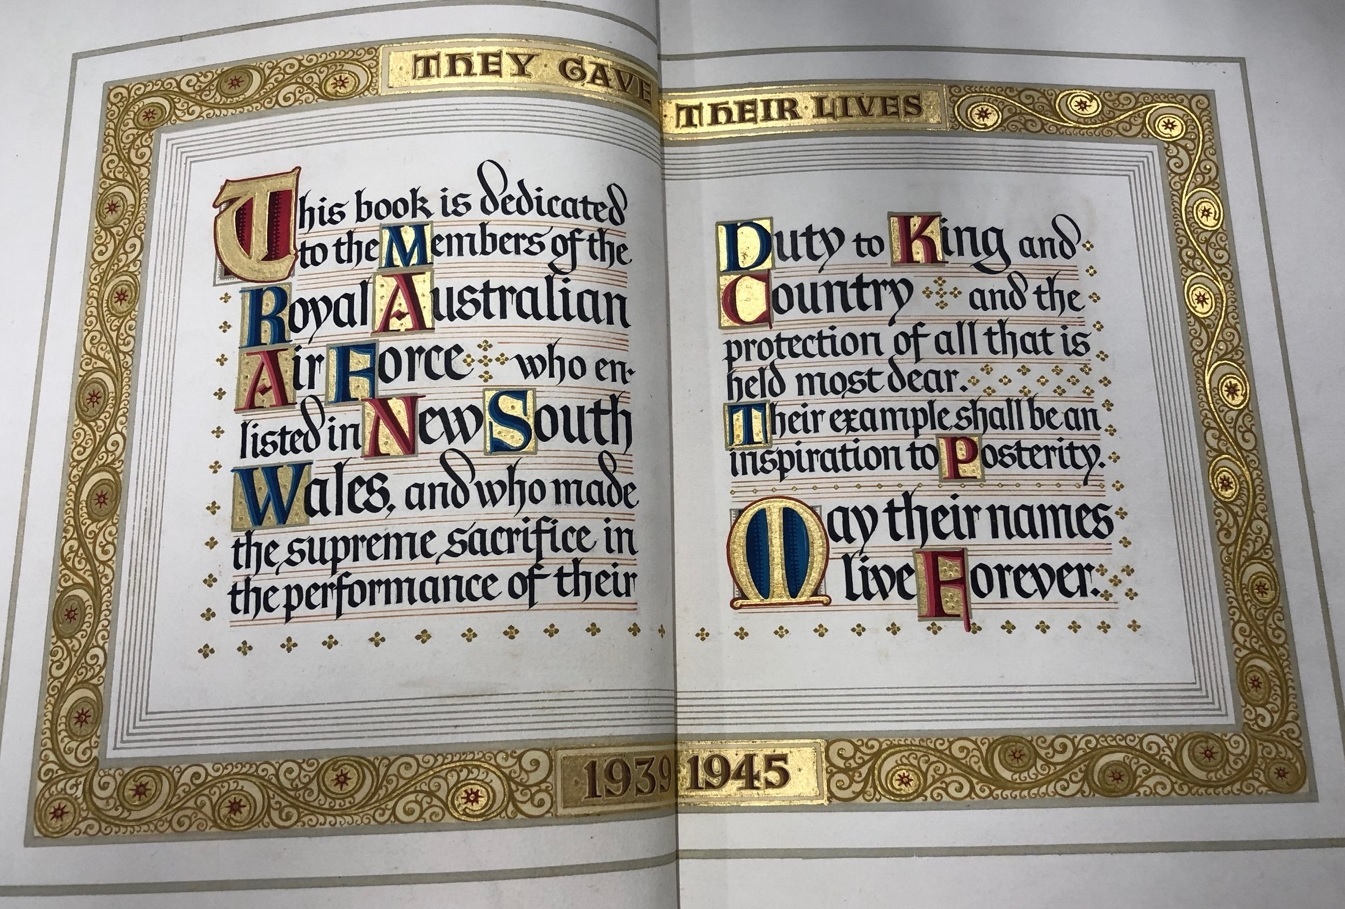 THEY GAVE THEIR LIVES
This book is dedicated
to the Members of the
Royal Australian
Air Force who en-
listed in New South
Wales, and who made
the supreme sacrifice in
the performance of their
Duty to King and
Country and the
protection of all that is
held most dear.
Their example shall be an
inspiration to Posterity.
May their names
live Forever.
1939 1945